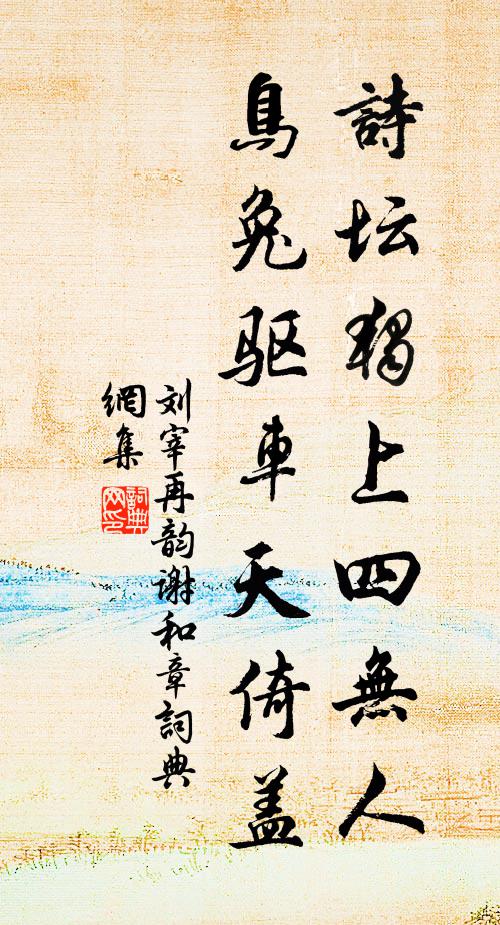 詩坛獨上四無人
烏兔驱車天倚盖
刘宰再韵谢和章詞典
網集
詞典
网印